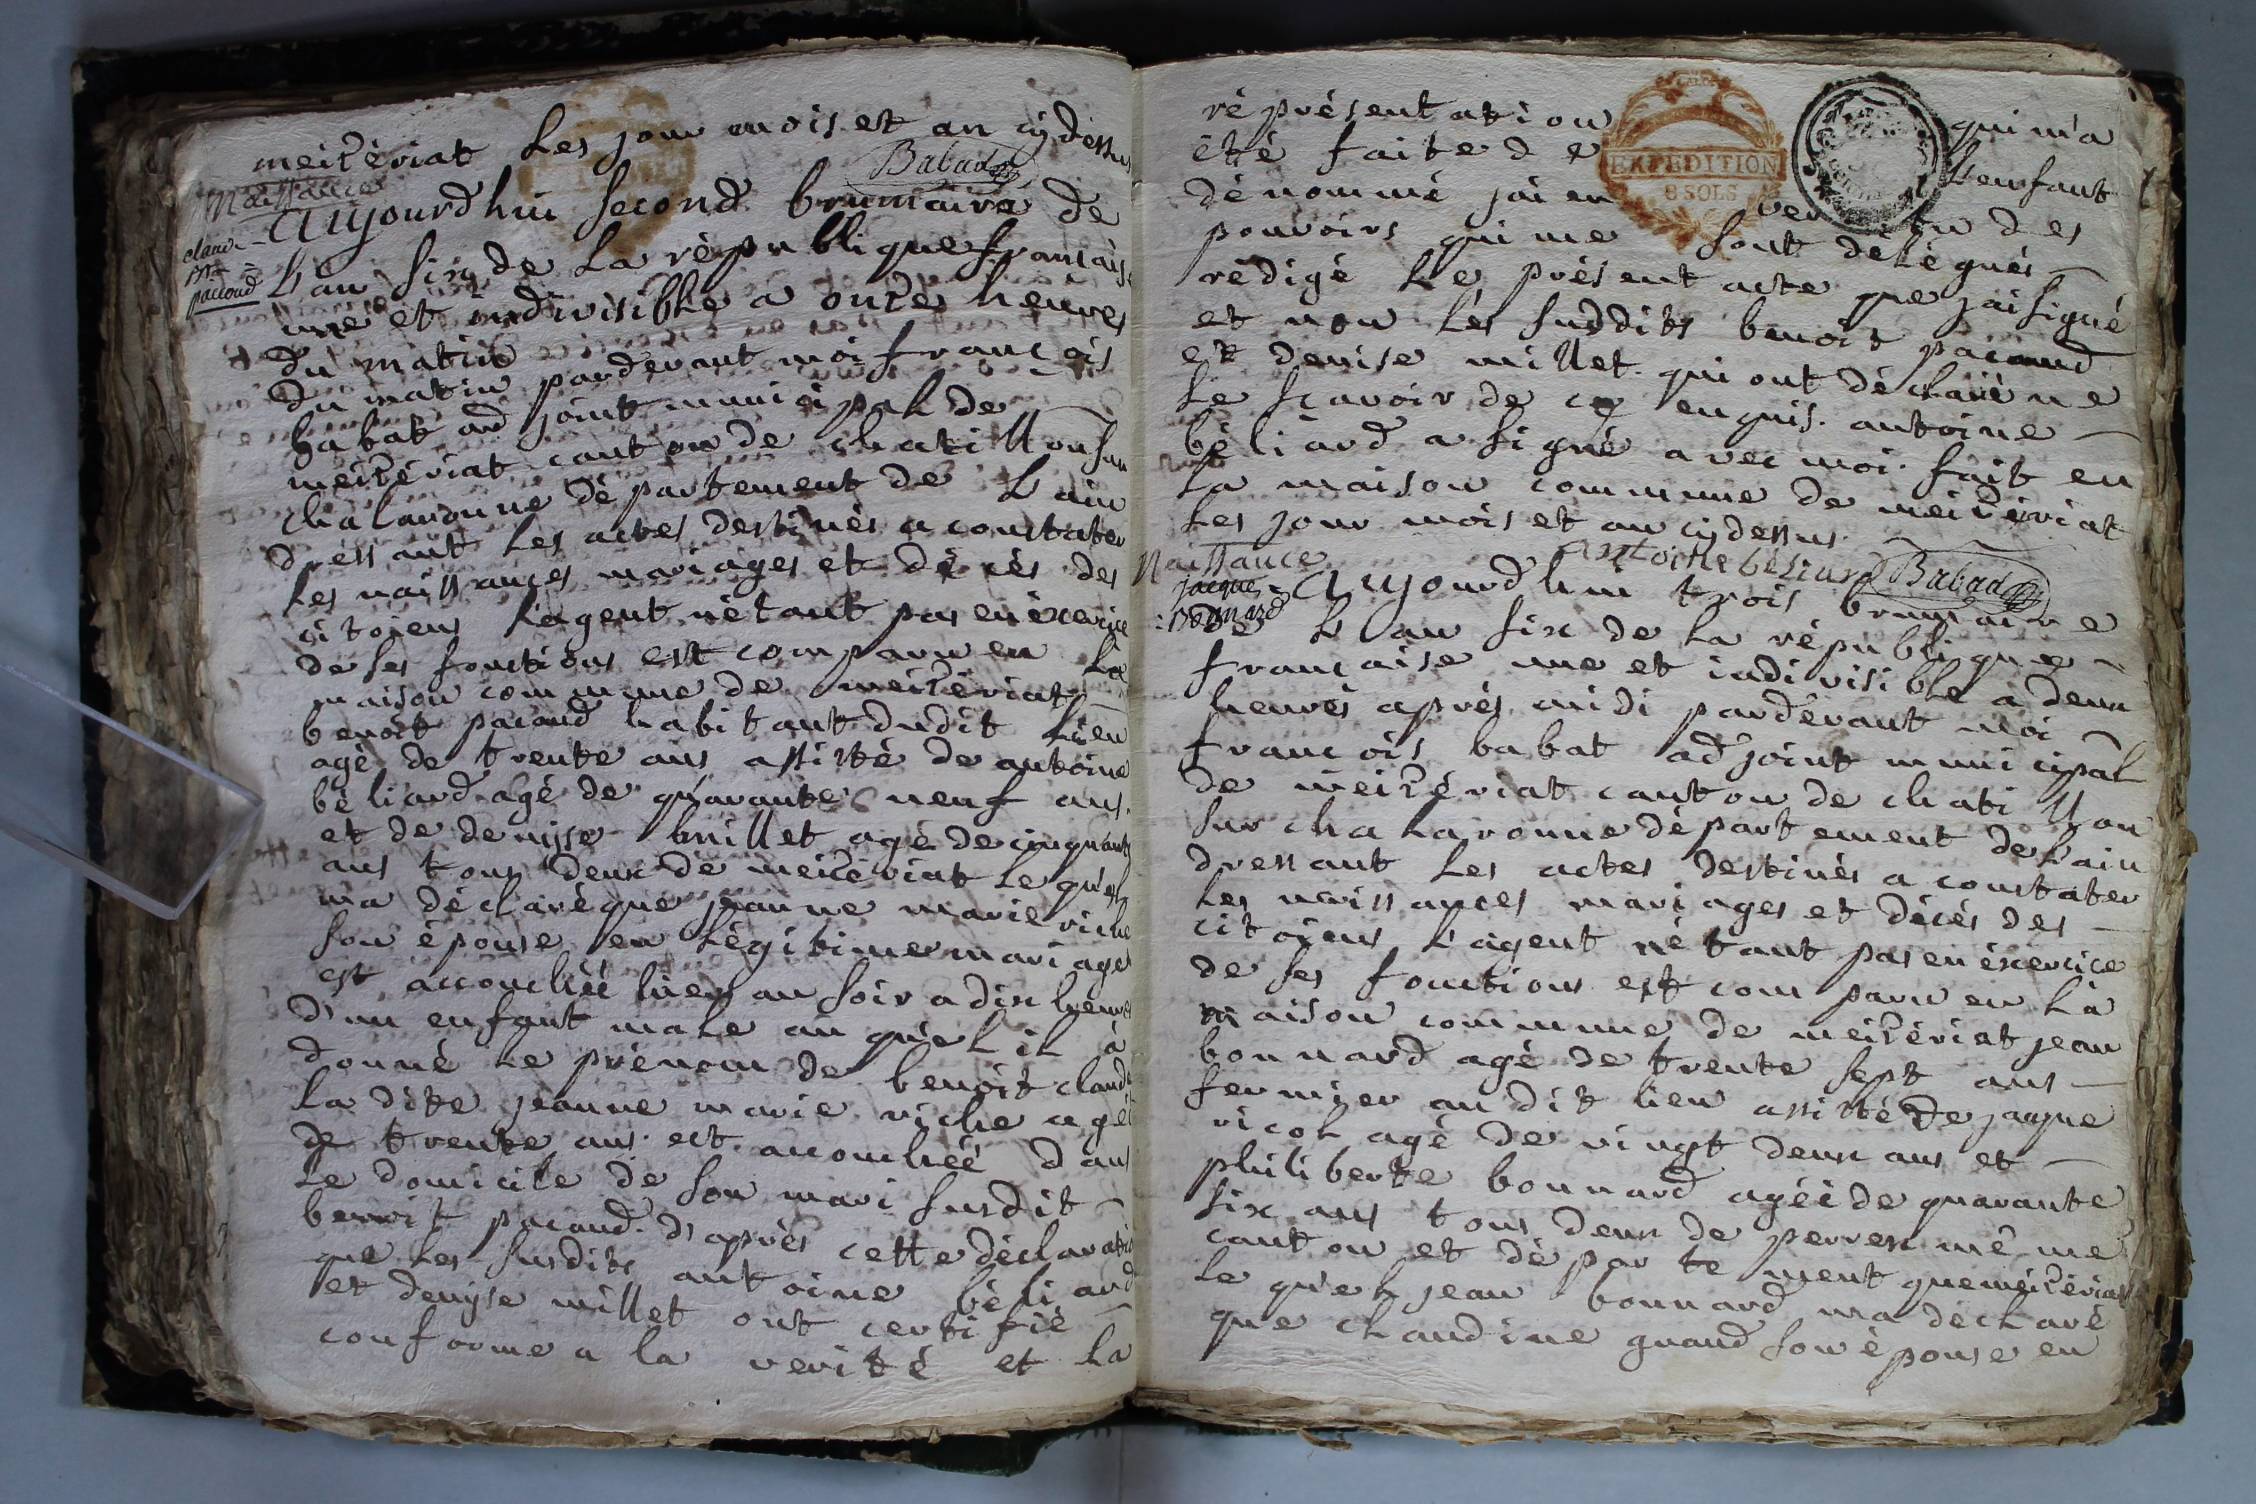 meiʒériat Les jour mois et an cy dessus
Babad
Naissance
claude
pacoud
Aujourdhui second brumaire de
L'an six de La république francaise
une et indivisible a onze heures
du matin
du matin pardevant moi francois
babat adjoint municipal de
meizériat canton de chatillon sur
chalaronne département de L'ain
dressant Les actes destinés a constater
Les naissances mariages et décès des
citoiens L'agent nétant pas en éxercice
de ses fonctions est comparu en La
maison commune de meizériat
benoit pacoud habitant dudit Lieu
agé de trente ans assisté de antoine
béliard agé de quarante neuf ans
et de denisse millet agé de cinquante
ans tous deux de meizériat Lequel
ma déclaré que jeanne marie riche
son épouse en Légitime mariage
est accouchée hier au soir a dix heures
d'un enfant male au quel il à
donné Le prénom de benoit claude
La dite jeanne marie riche agée
de trente ans est accouchée dans
Le domicile de son mari susdit
benoit pacoud d'après cette déclaration
que Les susdits antoine béliard
et denyse millet ont certifié
conforme a la verité et La
réprésentation qui m'a
été faite de L'enfant
dénommé jai en vertu des
pouvoirs qui me sont délégués
rédigé Le présent acte que jai signé
et non Les susdits benoit pacoud
et denise millet qui ont déclaré ne
Le sçavoir de ce enquis. antoine
béliard a signé avec moi. fait en
La maison commune de meizériat
Les jour mois et an cydessus
EXPEDITION
8 SOLS
antoine béliard Babad
Naissance
jacque
Bonnard
Aujourdhui trois brumaire
de L'an six de La république
francaise une et indivisible a deux
heures après midi pardevant moi
francois babat adjoint municipal
de meizériat canton de chatillon
sur chalaronne département de L'ain
dressant Les actes destinés a constater
Les naissances mariages et décès des
citoiens L'agent nétant pas en éxercice
de ses fonctions est comparu en La
maison commune de meizériat jean
bonnard agé de trente sept ans
fermier au dit lieu assisté de jaque
ricol agé de vingt deux ans et
philiberte bonnard agée de quarante
six ans tous deux de perrex mê me
canton et département que meizériat
Le quel jean bonnard ma déclaré
que claudine guand son épouse en